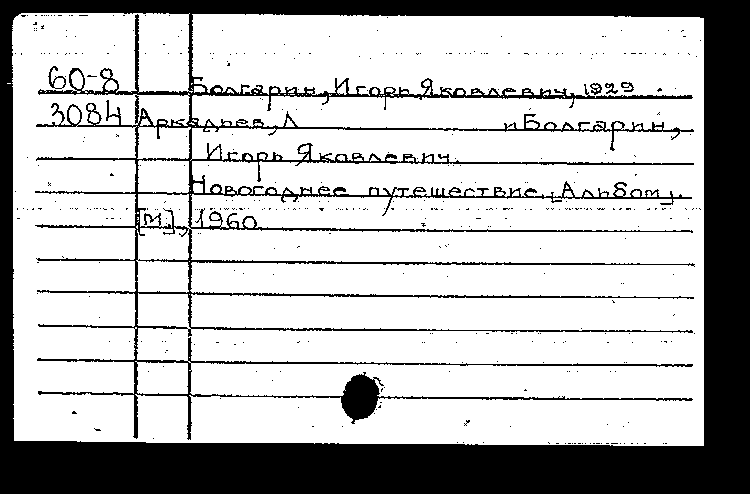 60-8 Болгарин, Игорь Яковлевич, 1929
3084 Аркадьев, Л и Болгарин,
Игорь Яковлевич.
Новогоднее путешествие. [Альбом].
[М.], 1960